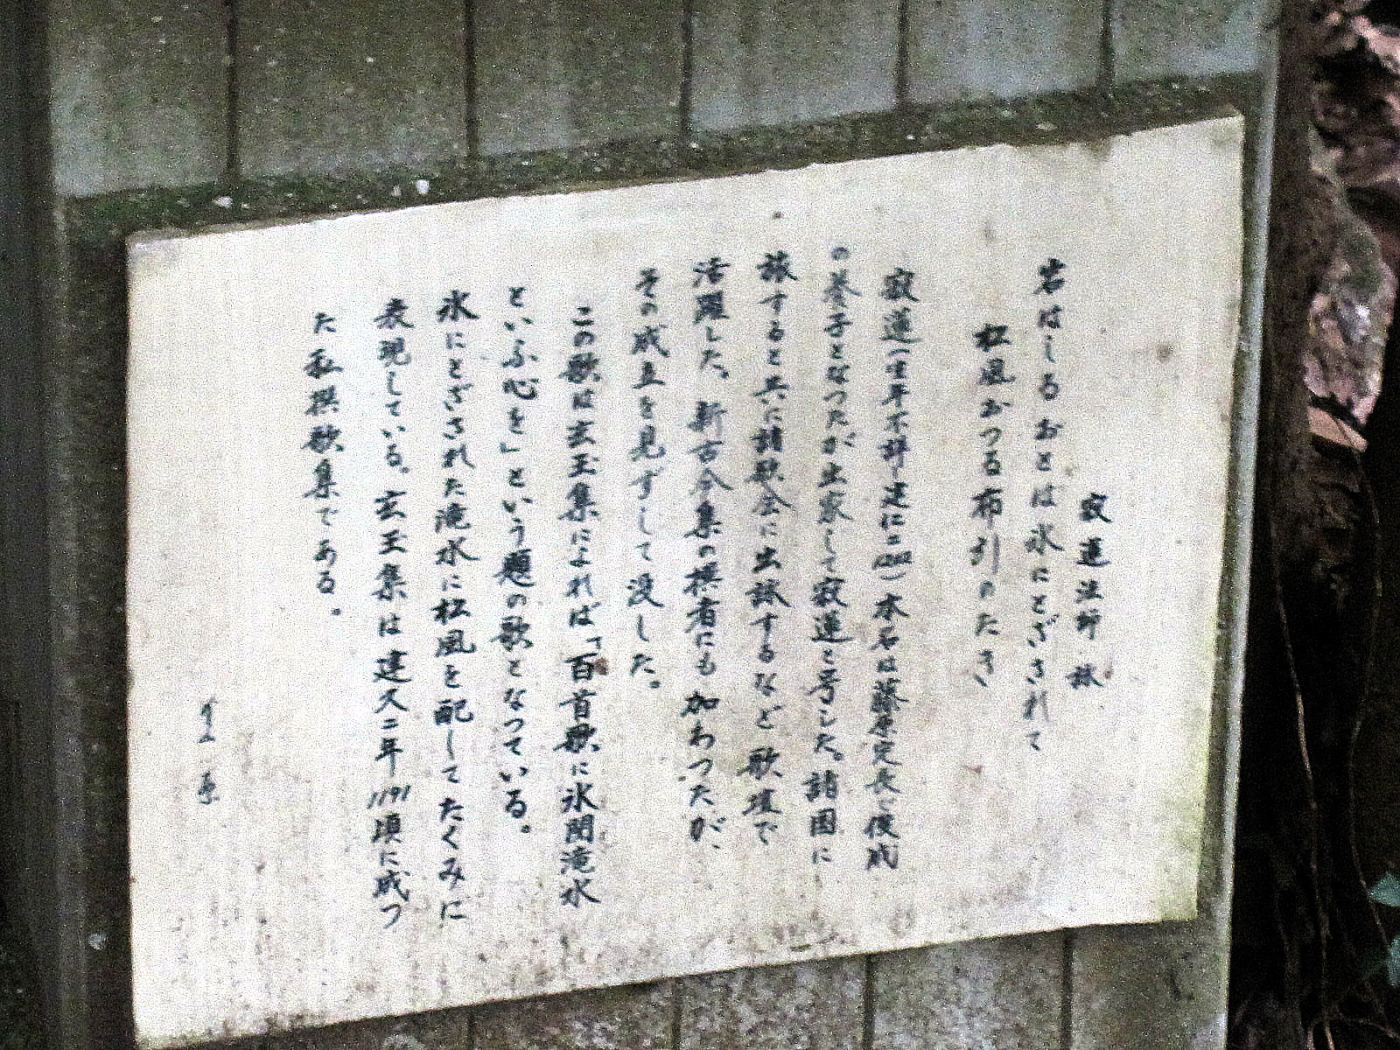 寂蓮法師 旅
岩はしる おとは 氷にとざされて
松風おつる布引のたき
寂蓮(生年不詳-建仁二1202)本名は藤原定長で俊成
の養子となったが出家して寂蓮と号した。諸国に
旅すると共に諸歌会に出詠するなど 歌壇で
活躍した。新古今集の撰者にも 加わったが、
その成立を見ずして没した。
この歌は玄玉集によれば「百首歌に氷閉滝水
といふ心を」という題の歌となっている。
氷にとざされた滝水に松風を配してたくみに
表現している。玄玉集は建久二年1191頃に成っ
た私撰歌集である。